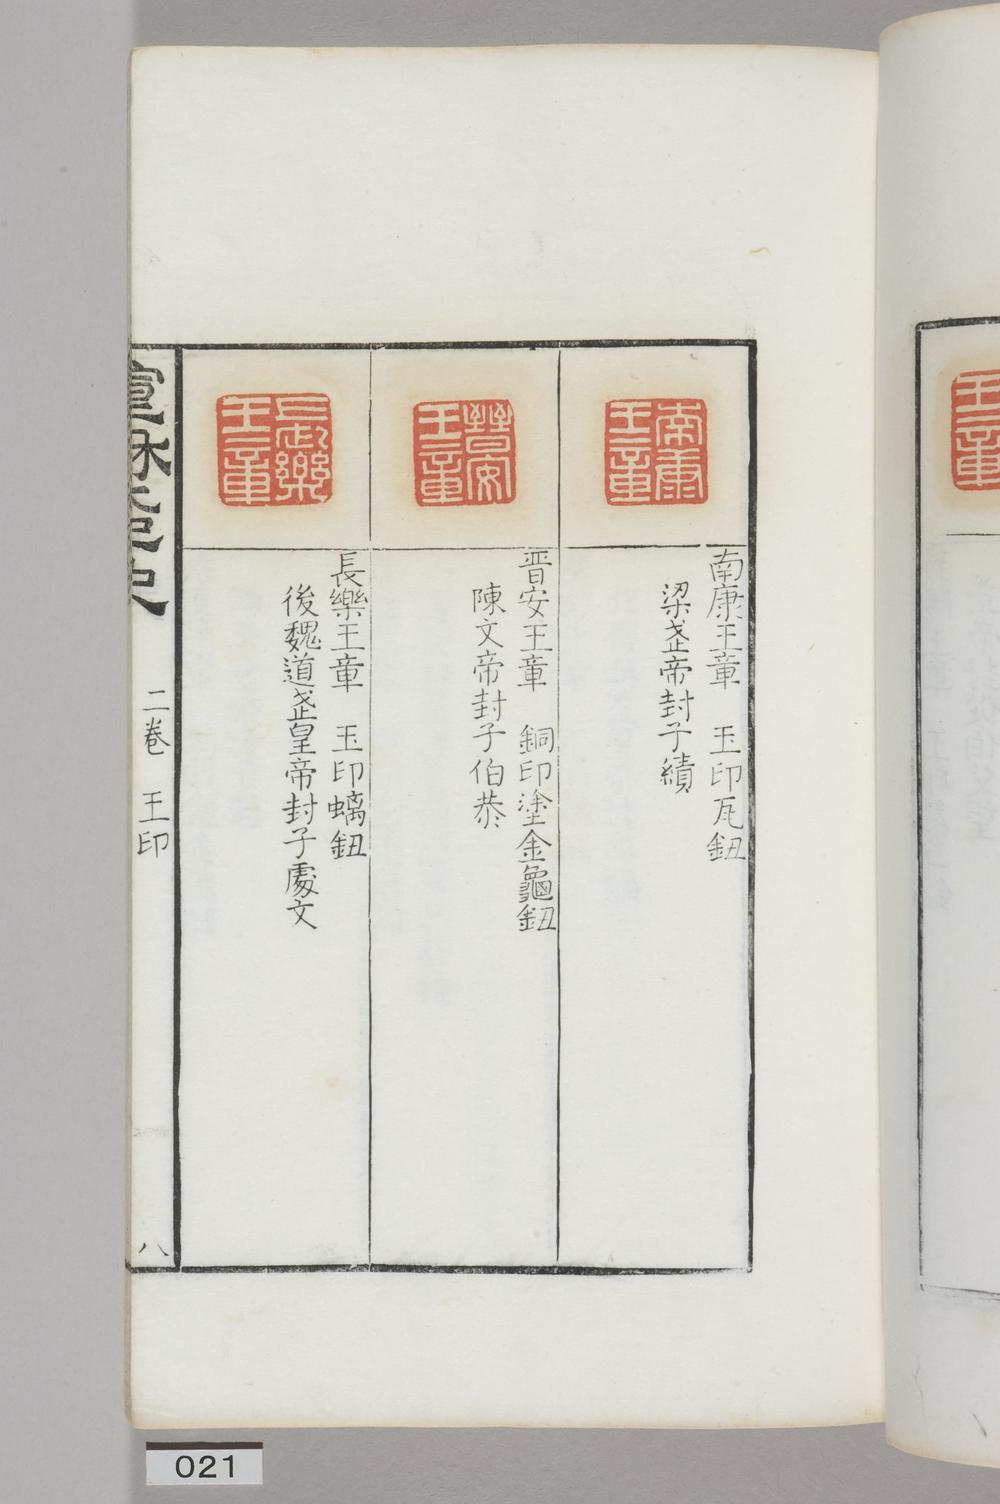 南康王章
南康王章　玉印瓦鈕
梁武帝封子績
晉安王章
晉安王章　銅印塗金龜鈕
陳文帝封子伯恭
長樂王章
長樂王章　玉印螭鈕
後魏道武皇帝封子處文
宣和集古印史
二卷　王印
八
王章
021